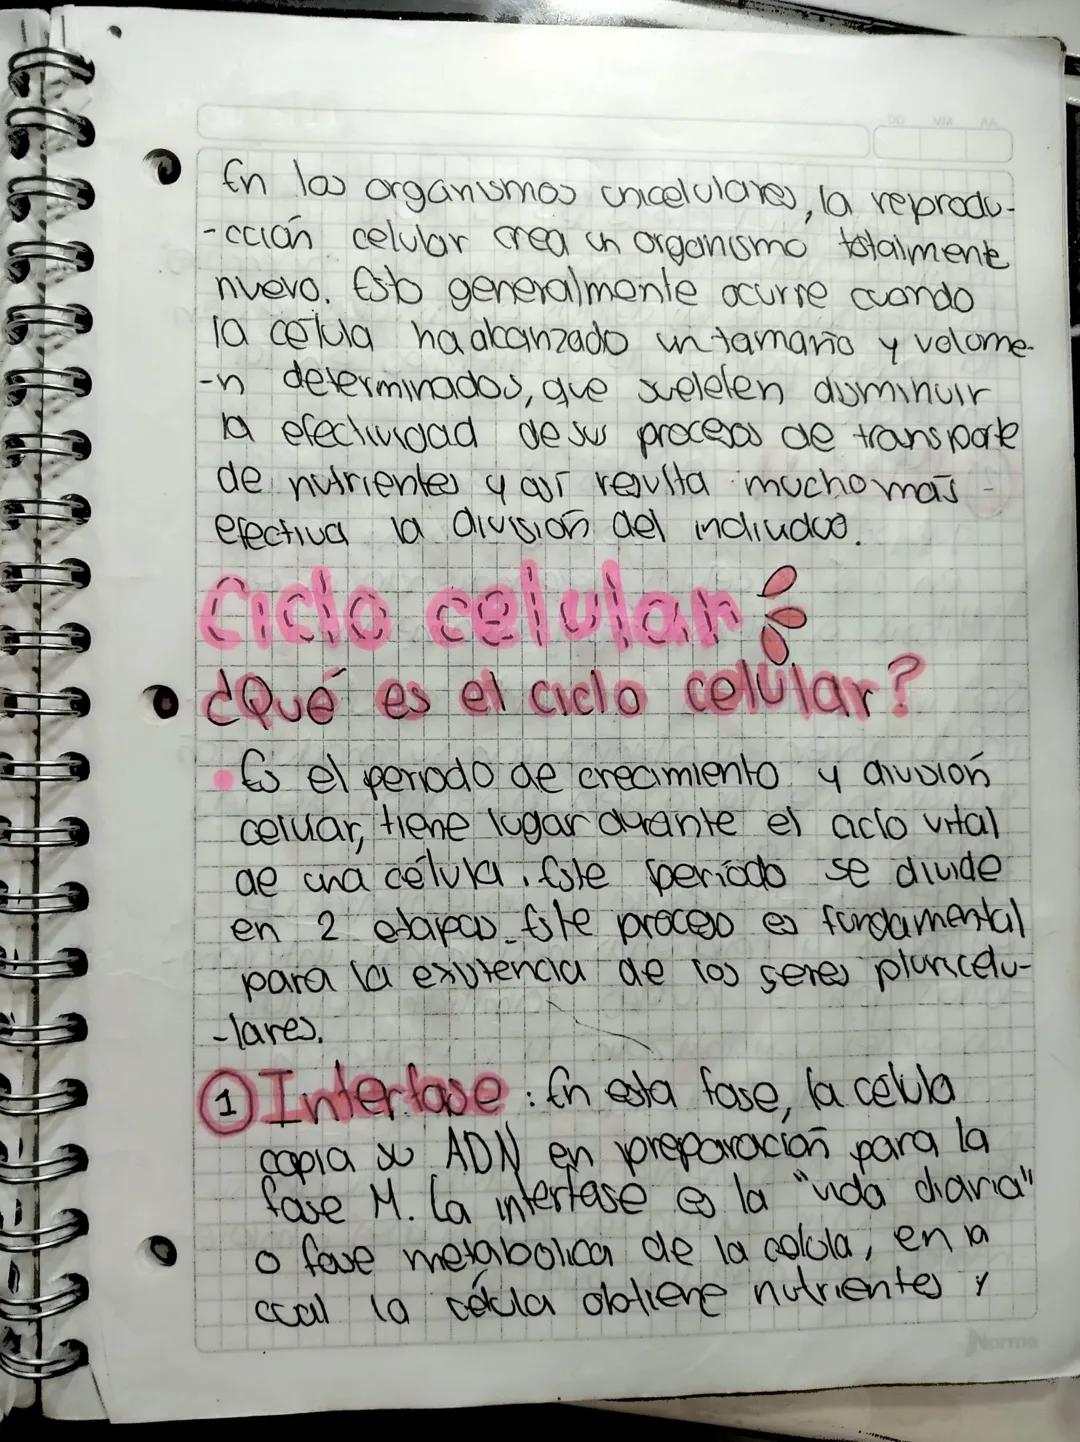 AA MM DD
En los organismos unicelulares, la reprodu-
-cción celular crea un organismo totalmente
nuevo. Esto generalmente ocurre cuando
la célula ha alcanzado un tamaño y volume-
-n determinados, que suelelen disminuir
la efectividad de sus procesos de transporte
de nutrientes y así resulta mucho más
efectiva la división del individuo.
Ciclo celular
¿Qué es el ciclo celular?
• Es el periodo de crecimiento y división
celular, tiene lugar durante el ciclo vital
de una célula. Este período se divide
en 2 etapas. Este proceso es fundamental
para la existencia de los seres pluricelu-
-lares.
1 Interfase: En esta fase, la célula
copia su ADN en preparación para la
fase M. La interfase es la "vida diaria"
o fase metabolica de la célula, en la
cual la célula obtiene nutrientes y
Norma